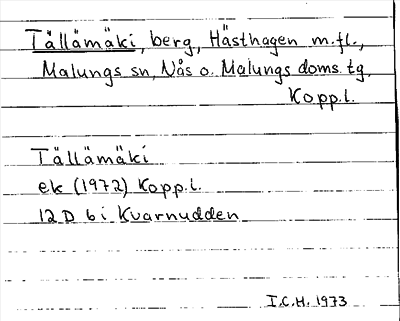 Tällämäki, berg, Hästhagen m.fl.,
Malungs sn, Nås o. Malungs doms.tg.
Kopp.l.
Tällämäki
ek (1972) Kopp.l.
12 D 6 i Kvarnudden
I.C.H. 1973